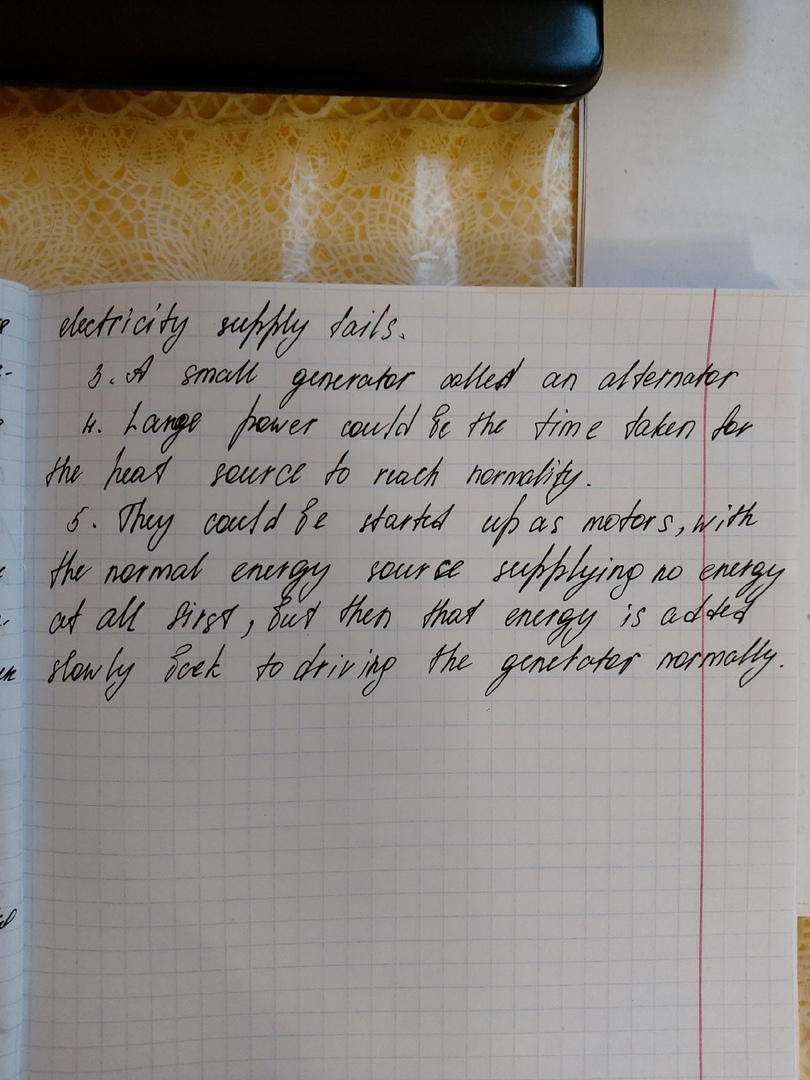 electricity supply fails.
3. A small generator called an alternator
4. Large power could be the time taken for
the heat source to reach normality.
5. They could be started up as motors, with
the normal energy source supplying no energy
at all first, but then that energy is added
slowly back to driving the generator normally.